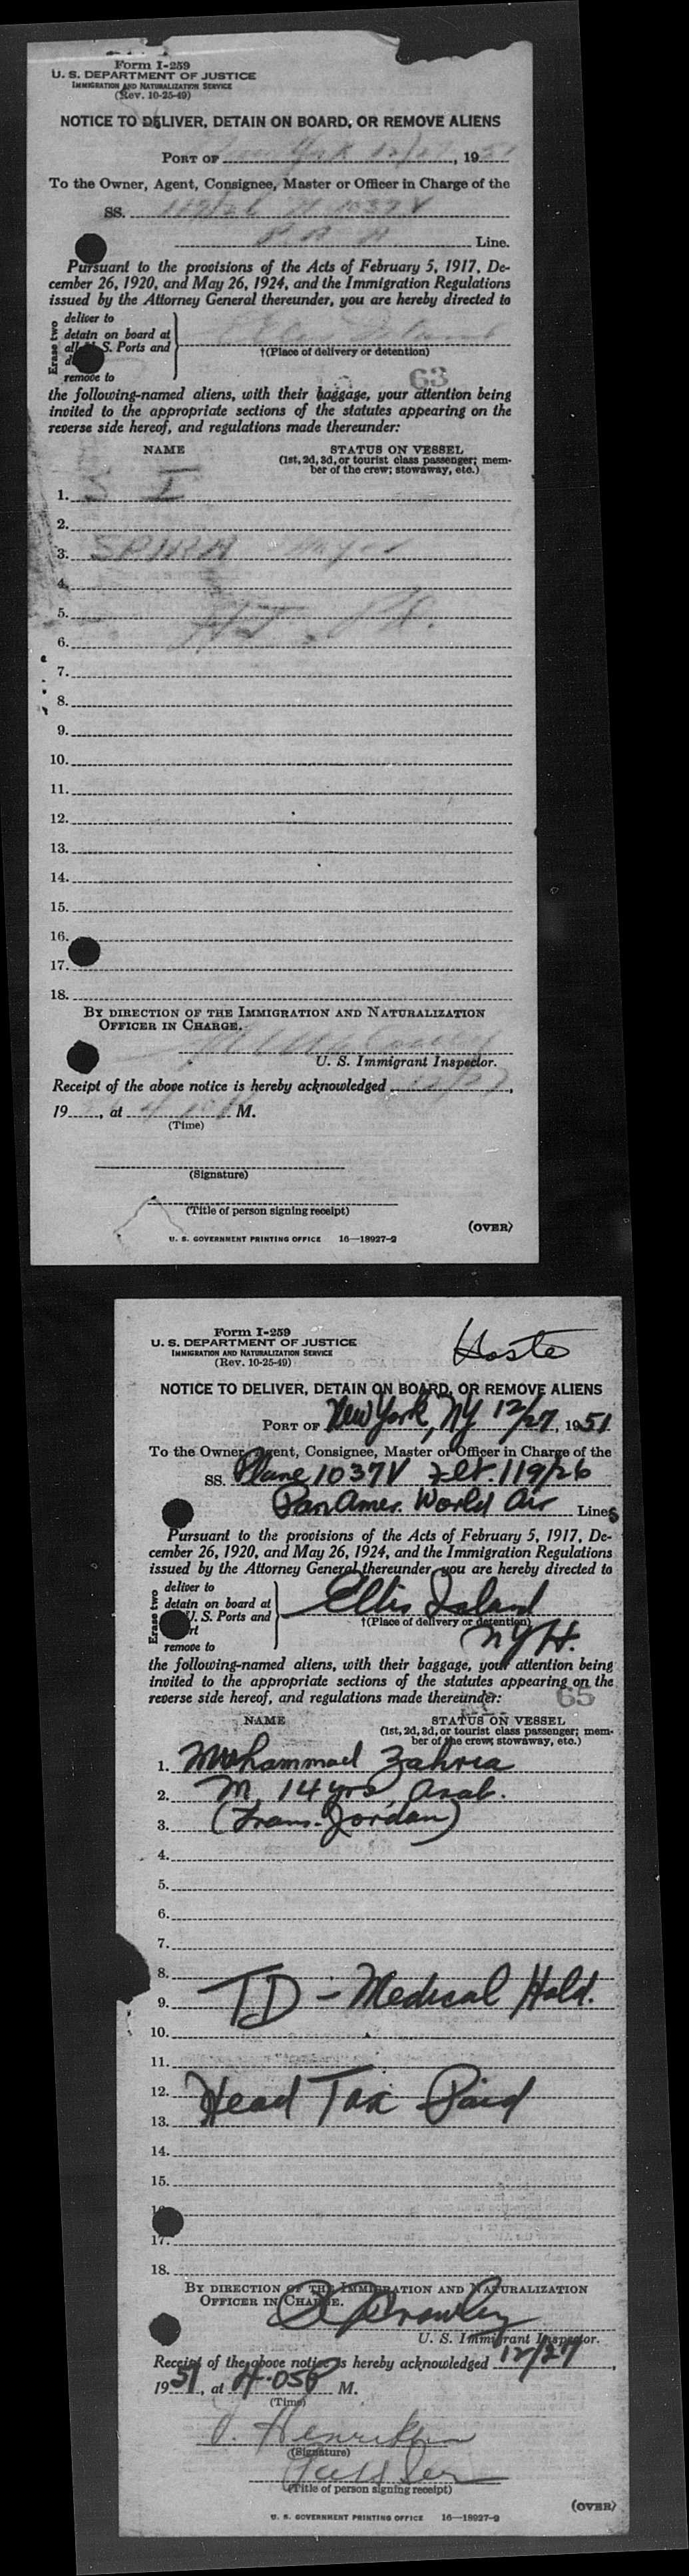 Form I-259
U. S. DEPARTMENT OF JUSTICE
IMMIGRATION AND NATURALIZATION SERVICE
(Rev. 10-25-49)
NOTICE TO DELIVER, DETAIN ON BOARD, OR REMOVE ALIENS
PORT OF New York 12/27, 1951
To the Owner, Agent, Consignee, Master or Officer in Charge of the
SS. 119/26 N 1037V
P. A. A. Line.
Pursuant to the provisions of the Acts of February 5, 1917, De-
cember 26, 1920, and May 26, 1924, and the Immigration Regulations
issued by the Attorney General thereunder, you are hereby directed to
Erase two
deliver to
detain on board at
all S. Ports and
remove to
Ellis Island
†(Place of delivery or detention)
63
the following-named aliens, with their baggage, your attention being
invited to the appropriate sections of the statutes appearing on the
reverse side hereof, and regulations made thereunder:
NAME STATUS ON VESSEL
(1st, 2d, 3d, or tourist class passenger; mem-
ber of the crew; stowaway, etc.)
1. S I
2.
3. SPIRA
4.
5.
6.
7.
8.
9.
10.
11.
12.
13.
14.
15.
16.
17.
18.
BY DIRECTION OF THE IMMIGRATION AND NATURALIZATION
OFFICER IN CHARGE.
U. S. Immigrant Inspector.
Receipt of the above notice is hereby acknowledged 12/27,
19, at M.
(Time)
(Signature)
(Title of person signing receipt)
(OVER)
U. S. GOVERNMENT PRINTING OFFICE 16—18927-2
Form I-259
U. S. DEPARTMENT OF JUSTICE
IMMIGRATION AND NATURALIZATION SERVICE
(Rev. 10-25-49)
Haste
NOTICE TO DELIVER, DETAIN ON BOARD, OR REMOVE ALIENS
PORT OF New York, NY 12/27, 1951
To the Owner, Agent, Consignee, Master or Officer in Charge of the
SS. Plane 1037V Flt. 119/26
Pan Amer. World Air Lines
Pursuant to the provisions of the Acts of February 5, 1917, De-
cember 26, 1920, and May 26, 1924, and the Immigration Regulations
issued by the Attorney General thereunder, you are hereby directed to
Erase two
deliver to
detain on board at
U. S. Ports and
remove to
Ellis Island
†(Place of delivery or detention)
NYH.
the following-named aliens, with their baggage, your attention being
invited to the appropriate sections of the statutes appearing on the
reverse side hereof, and regulations made thereunder:
65
NAME STATUS ON VESSEL
(1st, 2d, 3d, or tourist class passenger; mem-
ber of the crew; stowaway, etc.)
1. Muhammad Zahria
2. M, 14 yrs, Arab.
3. (Trans-Jordan)
4.
5.
6.
7.
8.
9. TD - Medical Hold.
10.
11.
12. Head Tax Paid
13.
14.
15.
17.
18.
BY DIRECTION OF THE IMMIGRATION AND NATURALIZATION
OFFICER IN CHARGE.
U. S. Immigrant Inspector.
Receipt of the above notice is hereby acknowledged 12/27,
1951, at 4:05P M.
(Time)
J. Henriksen
(Signature)
(Title of person signing receipt)
(OVER)
U. S. GOVERNMENT PRINTING OFFICE 16—18927-2